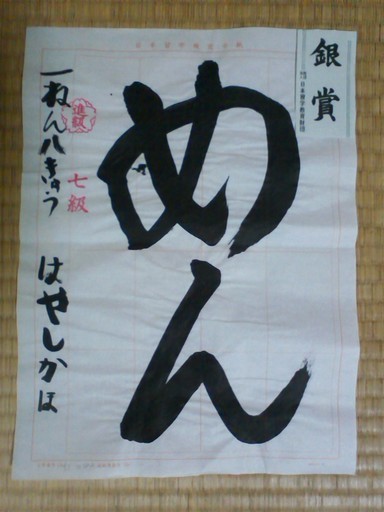 銀賞
日本習字教育財団
めん
進級
七級
一ねん八きゅう はやしかほ